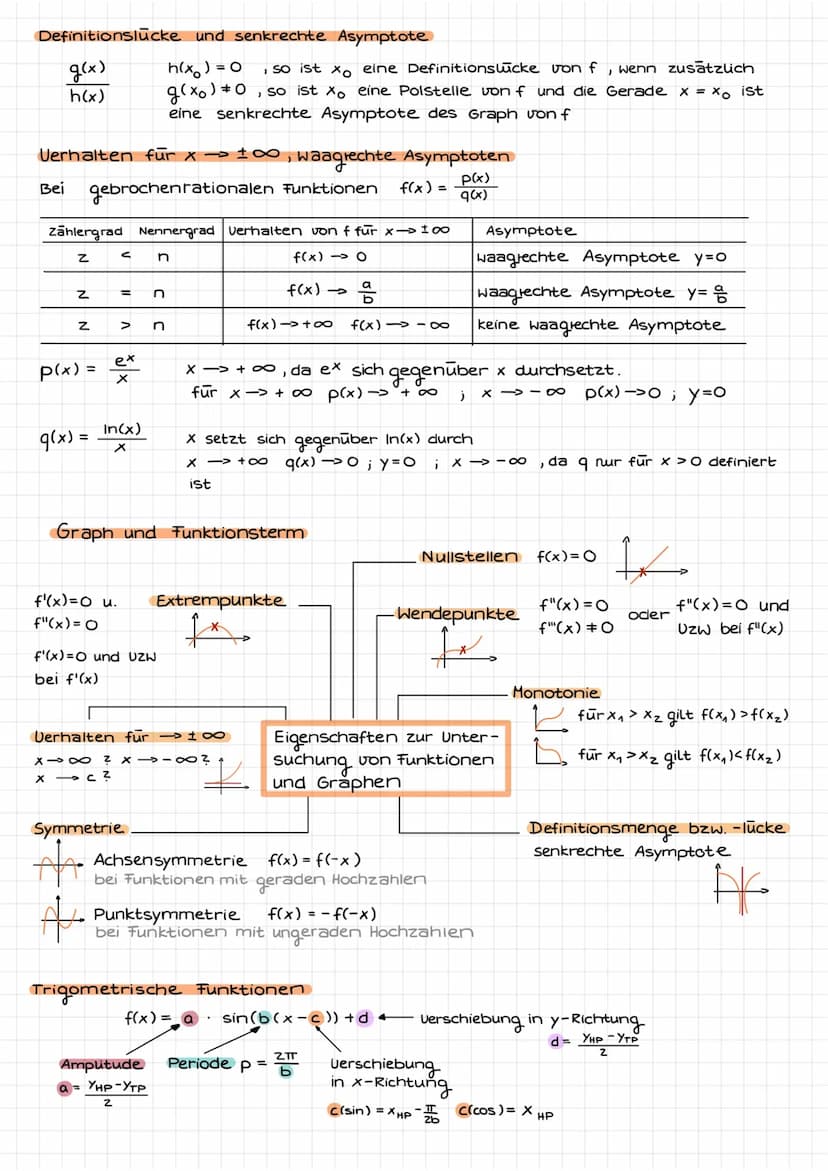 Definitionslücke und senkrechte Asymptote
g(x)/h(x)
h(x₀) = 0 , so ist x₀ eine Definitionslücke von f , wenn zusätzlich
g(x₀) ≠ 0 , so ist x₀ eine Polstelle von f und die Gerade x = x₀ ist
eine senkrechte Asymptote des Graph von f
Verhalten für x → ±∞ , waagrechte Asymptoten
Bei gebrochenrationalen Funktionen f(x) = p(x)/q(x)
Zählergrad Nennergrad Verhalten von f für x → ±∞ Asymptote
z < n f(x) → 0 waagrechte Asymptote y=0
z = n f(x) → a/b waagrechte Asymptote y= a/b
z > n f(x) → +∞ f(x) → -∞ keine waagrechte Asymptote
p(x) = eˣ/x
x → + ∞ , da eˣ sich gegenüber x durchsetzt.
für x → + ∞ p(x) → + ∞ ; x → - ∞ p(x) → 0 ; y=0
q(x) = ln(x)/x
x setzt sich gegenüber ln(x) durch
x → +∞ q(x) → 0 ; y=0 ; x → -∞ , da q nur für x > 0 definiert
ist
Graph und Funktionsterm
Nullstellen f(x) = 0
Extrempunkte
f'(x)=0 u.
f''(x) = 0
f'(x)=0 und VZW
bei f'(x)
Wendepunkte
f''(x) = 0
f'''(x) ≠ 0
oder
f''(x) = 0 und
VZW bei f''(x)
Monotonie
für x₁ > x₂ gilt f(x₁) > f(x₂)
für x₁ > x₂ gilt f(x₁) < f(x₂)
Verhalten für → ±∞
x → ∞ ? x → -∞ ?
x → c ?
Eigenschaften zur Unter-
suchung von Funktionen
und Graphen
Symmetrie
Achsensymmetrie f(x) = f(-x)
bei Funktionen mit geraden Hochzahlen
Punktsymmetrie f(x) = - f(-x)
bei Funktionen mit ungeraden Hochzahlen
Definitionsmenge bzw. -lücke
senkrechte Asymptote
Trigometrische Funktionen
f(x) = a · sin(b(x - c)) + d ← Verschiebung in y-Richtung
d = (yHP - yTP)/2
Amplitude
a = (yHP - yTP)/2
Periode p = 2π/b
Verschiebung
in x-Richtung
c(sin) = xHP - π/2b c(cos) = xHP